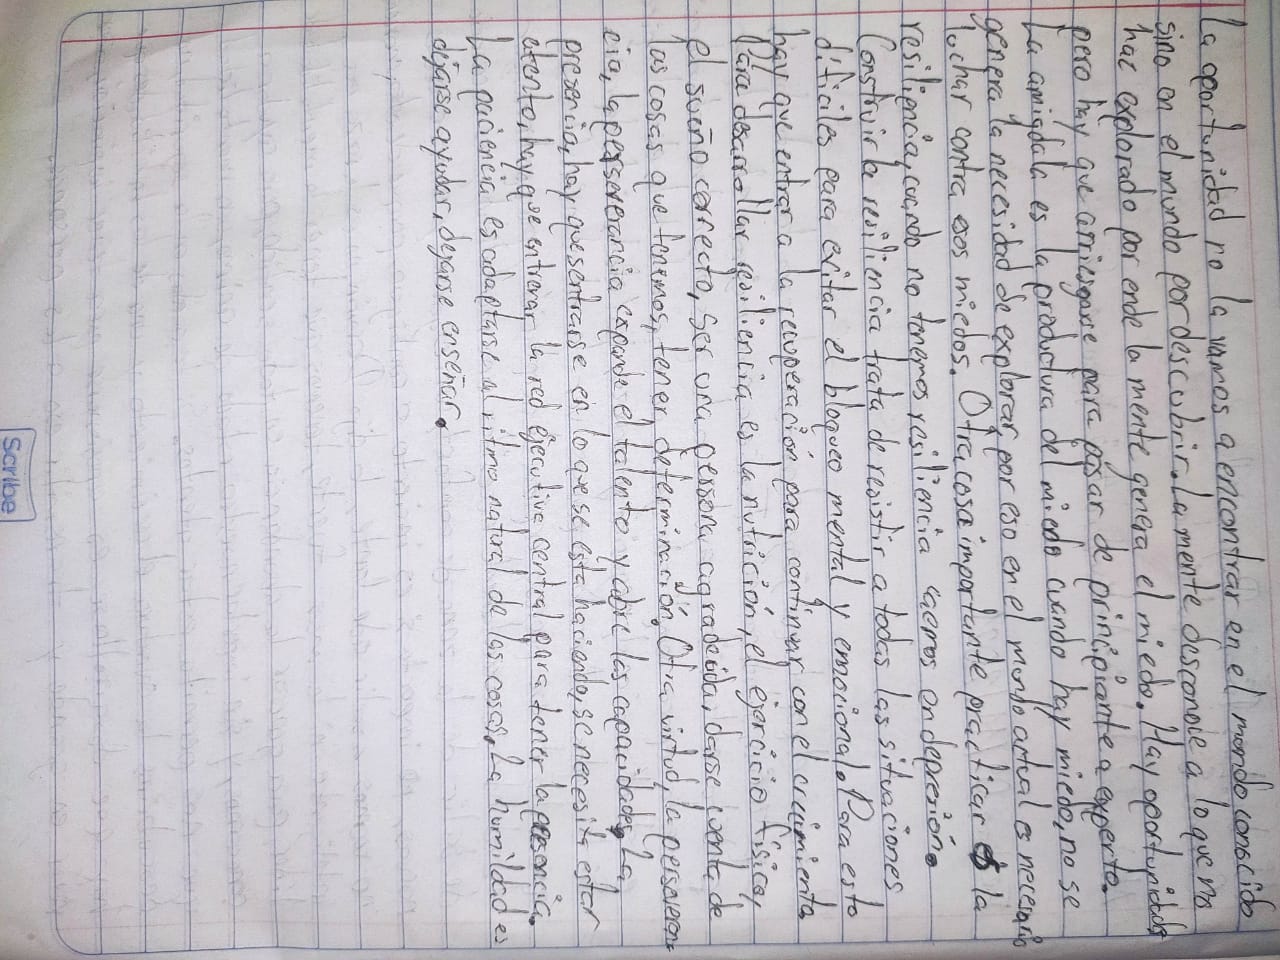 La oportunidad no la vamos a encontrar en el mundo conocido
sino en el mundo por descubrir. La mente desconoce a lo que no
hae explorado por ende la mente genera el miedo. Hay oportunidades
pero hay que arriesgarse para pasar de principiante a experto.
La amígdala es la productura del miedo cuando hay miedo, no se
genera la necesidad de explorar, por eso en el mundo actual es necesario
luchar contra esos miedos. Otra cosa importante practicar la
resiliencia, cuando no tenemos resiliencia caemos en depresión.
Construir la resiliencia trata de resistir a todas las situaciones
difíciles para evitar el bloqueo mental y emocional. Para esto
hay que entrar a la recuperación para continuar con el crecimiento.
Para desarrollar resiliencia es la nutrición, el ejercicio físico,
el sueño correcto, ser una persona agradecida, darse cuenta de
las cosas que tenemos, tener determinación. Otra virtud, la perseveran-
cia, la perseverancia expande el talento y abre las capacidades. La
presencia, hay que sentrarse en lo que se esta haciendo, se necesita estar
atento, hay que entrenar la red ejecutiva central para tener la presencia.
La paciencia es adaptarse al ritmo natural de las cosas. La humildad es
dejarse ayudar, dejarse enseñar.
Scribe